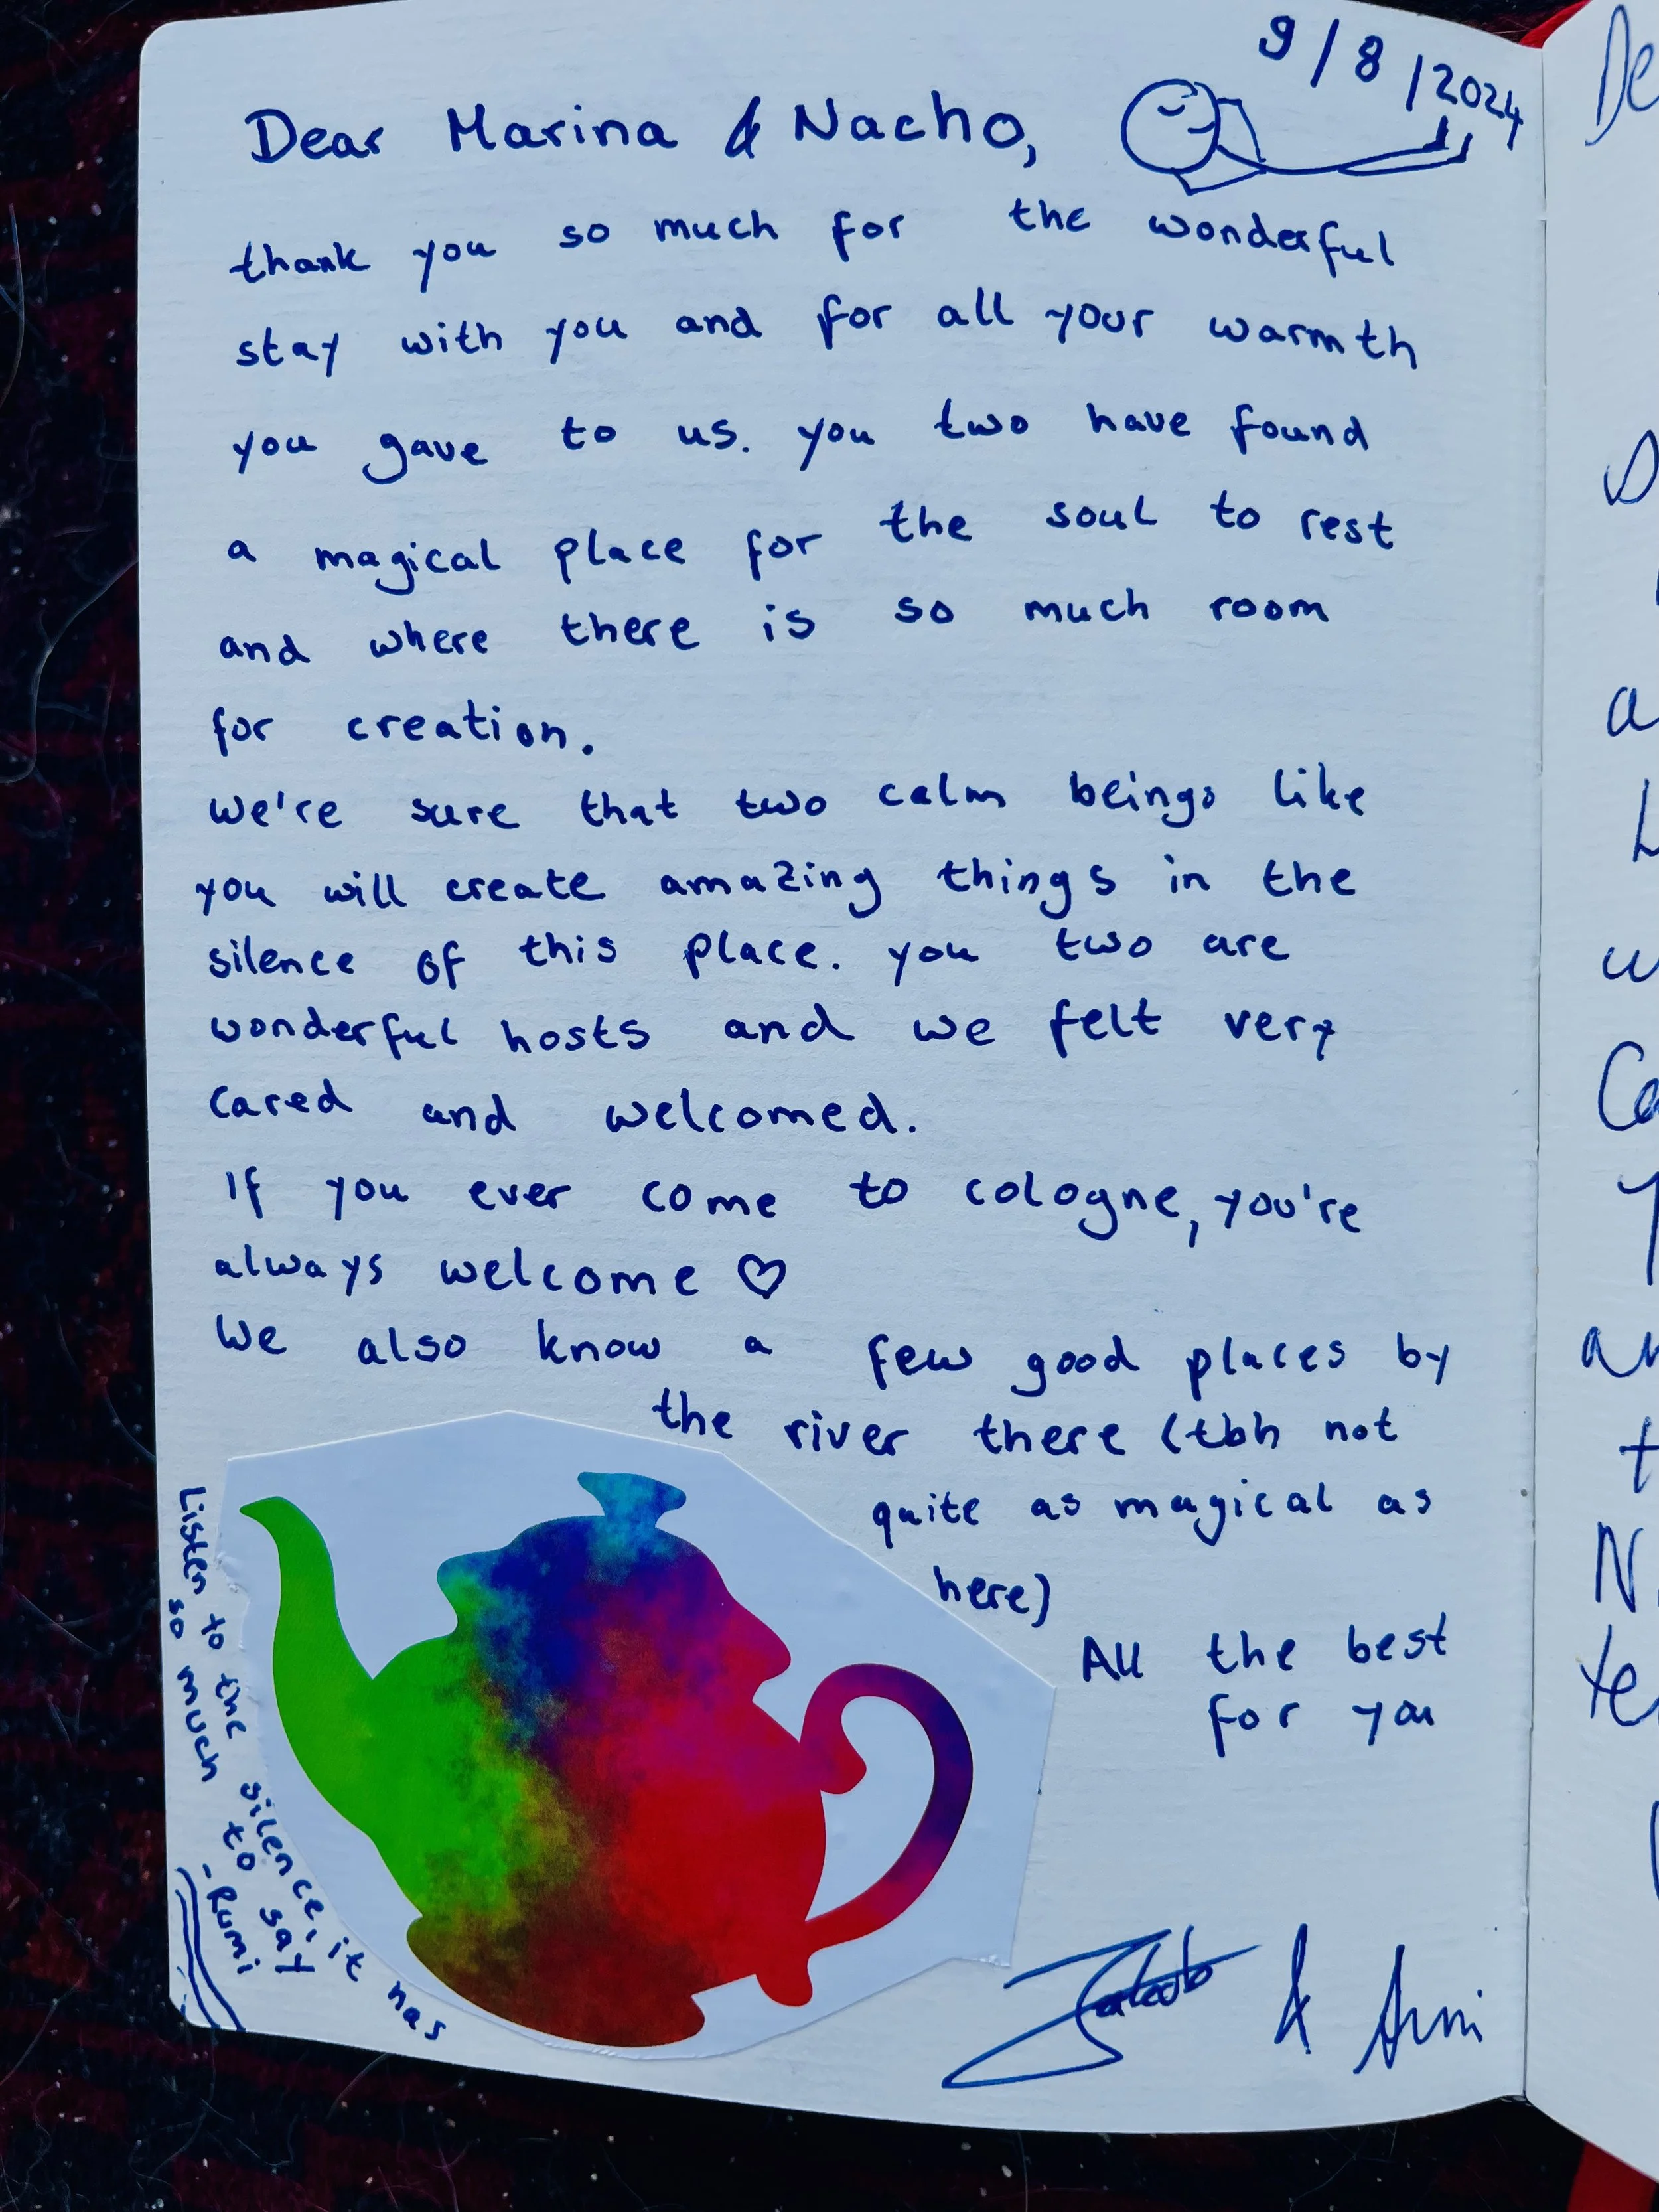 9/8/2024
Dear Marina & Nacho,
thank you so much for the wonderful
stay with you and for all your warmth
you gave to us. you two have found
a magical place for the soul to rest
and where there is so much room
for creation.
We're sure that two calm beings like
you will create amazing things in the
silence of this place. you two are
wonderful hosts and we felt very
cared and welcomed.
If you ever come to cologne, you're
always welcome ♡
We also know a few good places by
the river there (tbh not
quite as magical as
here)
All the best
for you
Jakob & Arni
Listen to the silence, it has
so much to say
- Rumi